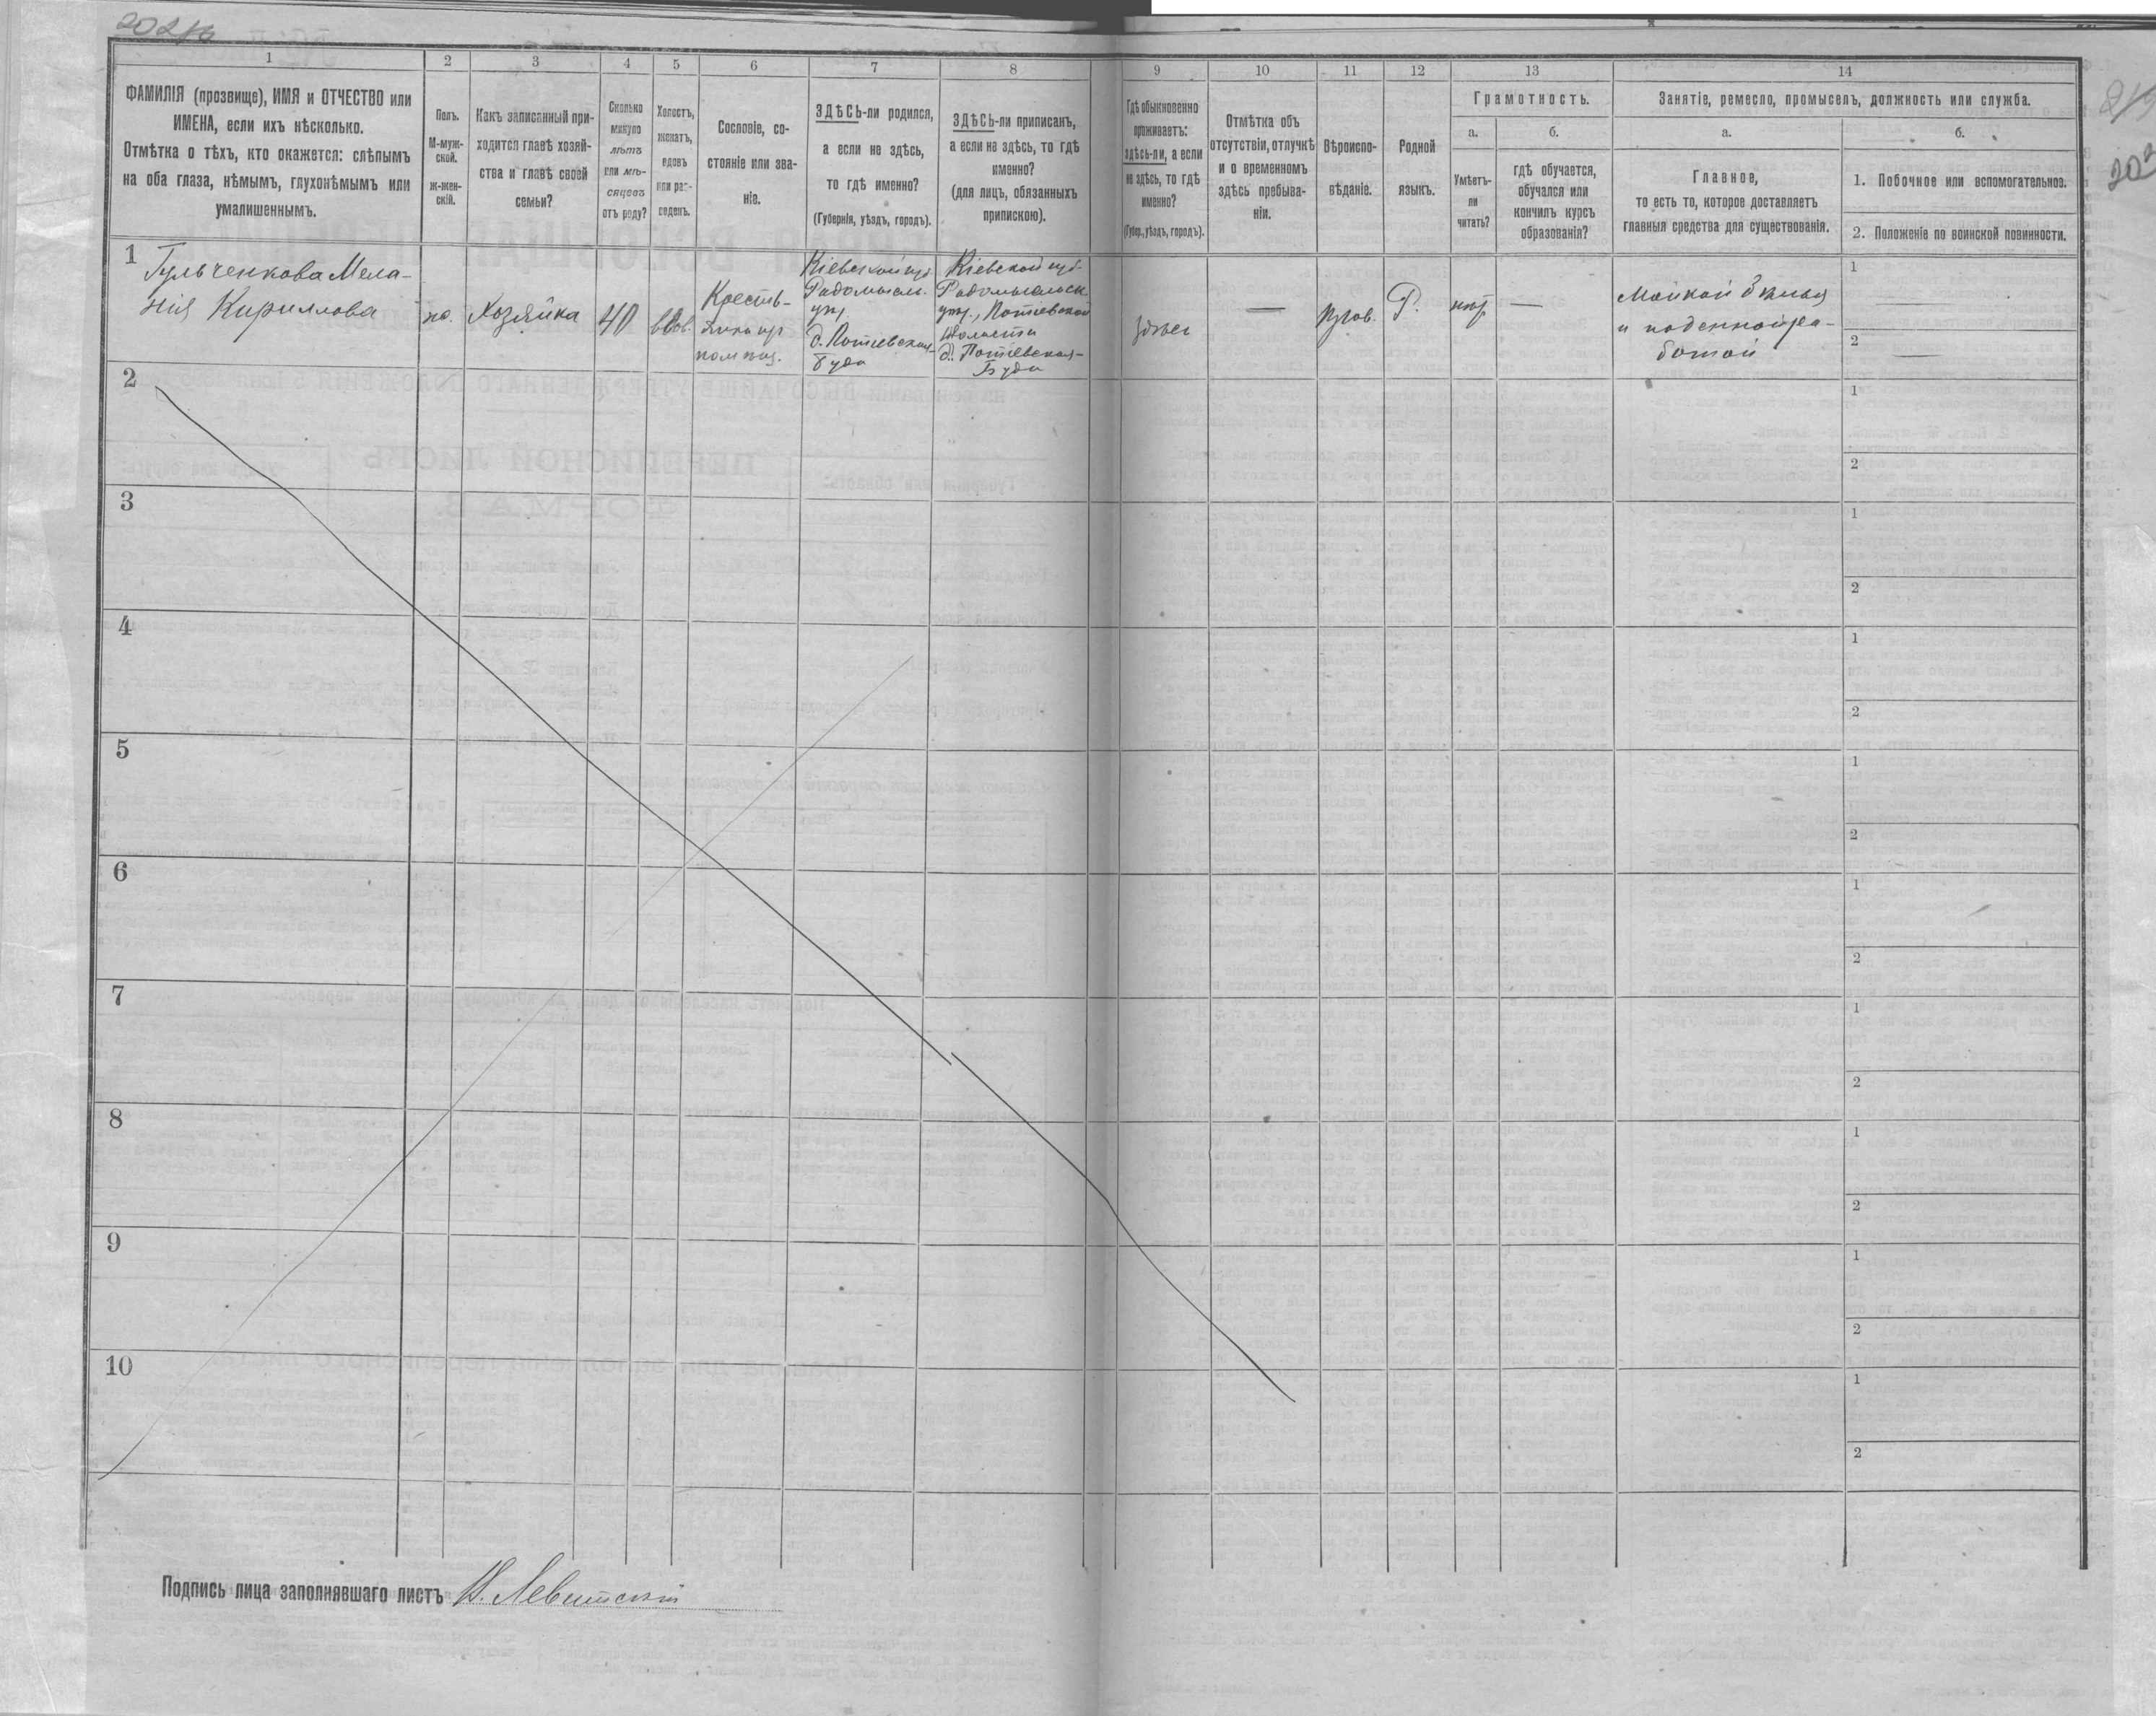 1 2 3 4 5 6 7 8 9 10 11 12 13 14
ФАМИЛІЯ (прозвище), ИМЯ и ОТЧЕСТВО или
ИМЕНА, если ихъ нѣсколько.
Отмѣтка о тѣхъ, кто окажется: слѣпымъ
на оба глаза, нѣмымъ, глухонѣмымъ или
умалишеннымъ.
Полъ.
М-муж-
ской.
ж-жен-
скій.
Какъ записанный при-
ходится главѣ хозяй-
ства и главѣ своей
семьи?
Сколько
минуло
лѣтъ
или мѣ-
сяцевъ
отъ роду?
Холостъ,
женатъ,
вдовъ
или раз-
веденъ.
Сословіе, со-
стояніе или зва-
ніе.
ЗДѢСЬ-ли родился,
а если не здѣсь,
то гдѣ именно?
(Губернія, уѣздъ, городъ).
ЗДѢСЬ-ли приписанъ,
а если не здѣсь, то гдѣ
именно?
(для лицъ, обязанныхъ
припискою).
Гдѣ обыкновенно
проживаетъ:
здѣсь-ли, а если
не здѣсь, то гдѣ
именно?
(Губер., уѣздъ, городъ).
Отмѣтка объ
отсутствіи, отлучкѣ
и о временномъ
здѣсь пребыва-
ніи.
Вѣроиспо-
вѣданіе.
Родной
языкъ.
Грамотность.
а.
Умѣетъ-
ли
читать?
б.
гдѣ обучается,
обучался или
кончилъ курсъ
образованія?
Занятіе, ремесло, промыселъ, должность или служба.
а.
Главное,
то есть то, которое доставляетъ
главныя средства для существованія.
б.
1. Побочное или вспомогательное.
2. Положеніе по воинской повинности.
1
Гульченкова Мела-
нія Кириллова
Хозяйка
40
вдов.
Кресть-
янка
Кіевской губ.
Радомысль.
д. Потіевская-
Буда
Кіевской губ.
Радомысльск.
Потіевской
Волости
д. Потіевская-
Буда
здѣсь
—
Прав.
Р.
нѣт
—
Мойкой бѣлья
и поденной ра-
ботой
1 —
2 —
2
1
2
3
1
2
4
1
2
5
1
2
6
1
2
7
1
2
8
1
2
9
1
2
10
1
2
Подпись лица заполнявшаго листъ Левитскій